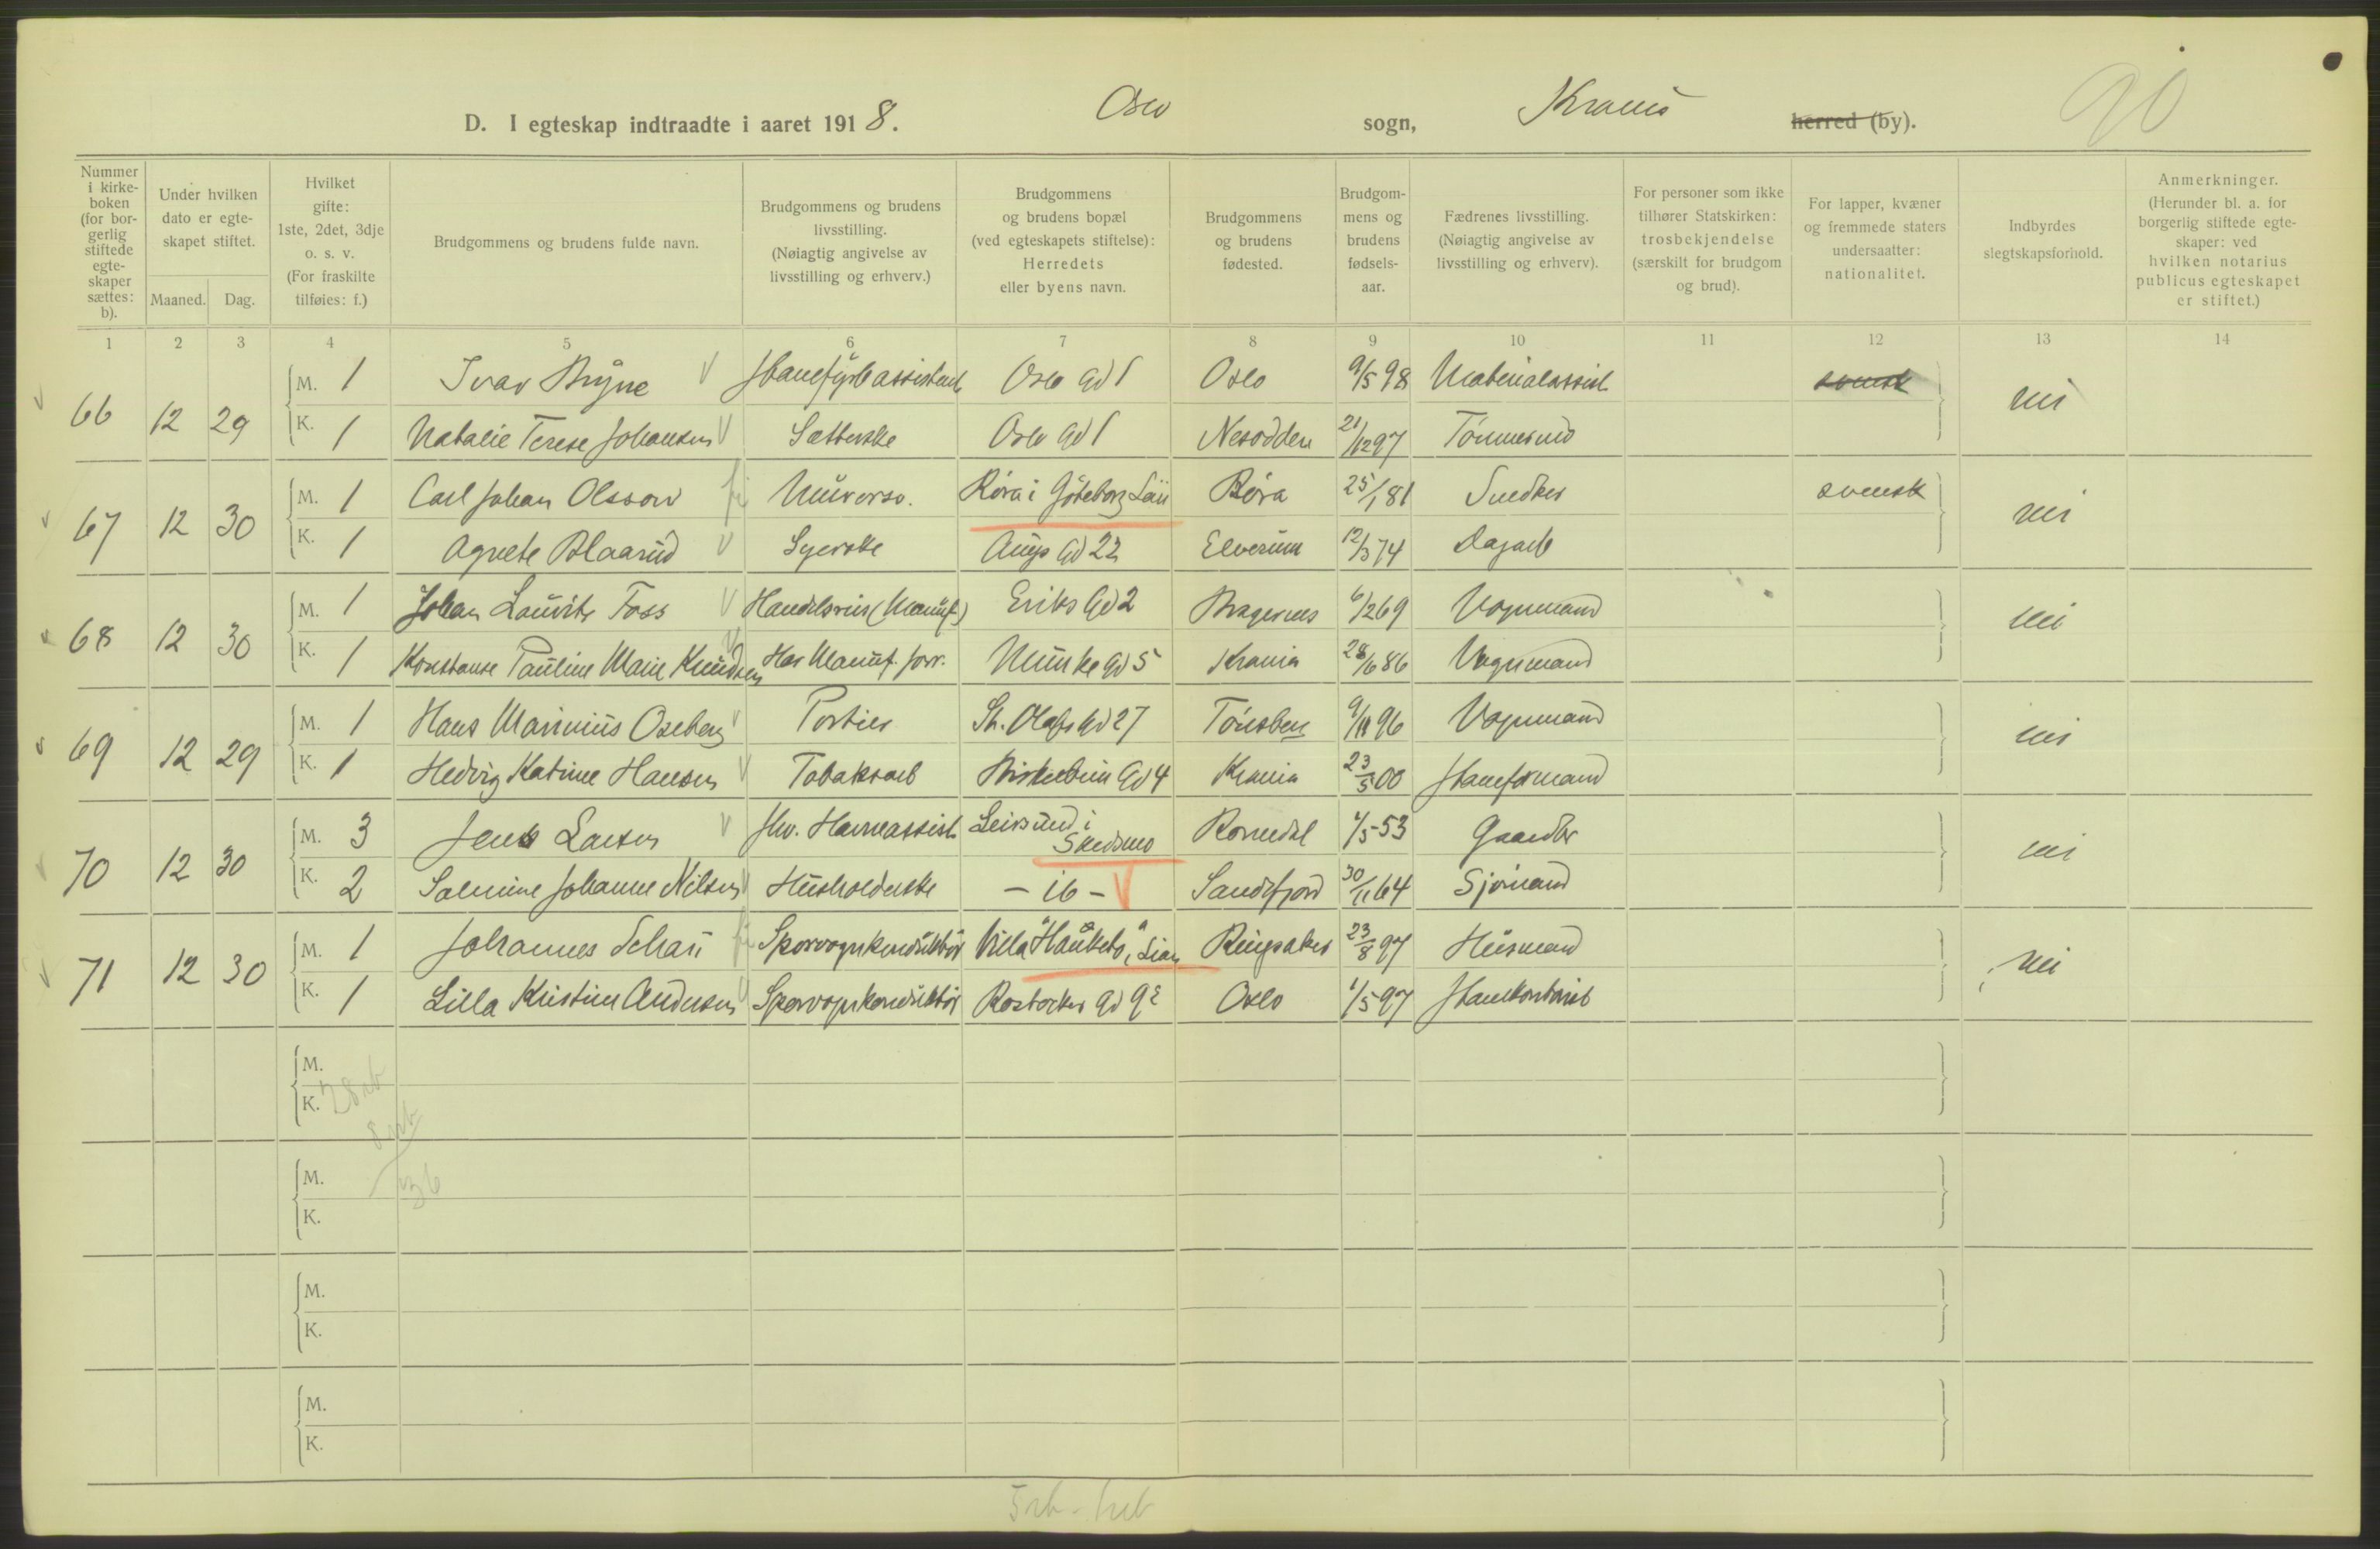 90
D. I egteskap indtraadte i aaret 1918. Oslo sogn, Krania herred (by).
Nummer i kirkeboken (for borgerlig stiftede egteskaper sættes: b).
Under hvilken dato er egteskapet stiftet.
Maaned. Dag.
Hvilket gifte: 1ste, 2det, 3dje o. s. v. (For fraskilte tilføies: f.)
Brudgommens og brudens fulde navn.
Brudgommens og brudens livsstilling. (Nøiagtig angivelse av livsstilling og erhverv.)
Brudgommens og brudens bopæl (ved egteskapets stiftelse): Herredets eller byens navn.
Brudgommens og brudens fødested.
Brudgommens og brudens fødselsaar.
Fædrenes livsstilling. (Nøiagtig angivelse av livsstilling og erhverv).
For personer som ikke tilhører Statskirken: trosbekjendelse (særskilt for brudgom og brud).
For lapper, kvæner og fremmede staters undersaatter: nationalitet.
Indbyrdes slegtskapsforhold.
Anmerkninger. (Herunder bl. a. for borgerlig stiftede egteskaper: ved hvilken notarius publicus egteskapet er stiftet.)
1 2 3 4 5 6 7 8 9 10 11 12 13 14
66 12 29 M. 1 Ivar Bryne Oslo Gd 1 Oslo 9/5 98 Materialassist svensk nei
K. 1 Natalie Terese Johansen Sætterske Oslo Gd 1 Nesodden 21/12 97 Tømmermd
67 12 30 M. 1 Carl Johan Olsson Murersv. Röra i Göteborg Län Röra 25/1 81 Snedker svensk nei
K. 1 Agnete Blaarud Syerske Augs Gd 22 Elverum 12/3 74 Dagarb
68 12 30 M. 1 Johan Lauritz Foss Handelsreis (Manuf.) Eriks Gd 2 Bragernes 6/2 69 Vognmand nei
K. 1 Konstanse Pauline Marie Knudsen Har Manuf. forr. Munke Gd 5 Krania 28/6 86 Vognmand
69 12 29 M. 1 Hans Marinius Oseberg Portier St. Olafs Gd 27 Tønsberg 9/11 96 Vognmand nei
K. 1 Hedvig Katrine Hansen Tobaksarb Birkebein Gd 4 Krania 23/5 00
70 12 30 M. 3 Jens Larsen Havneassist Leirsund i Skedsmo Romedal 1/5 53 Gaardbr nei
K. 2 Salmine Johanne Nilsen Husholderske - ib - Sandefjord 30/11 64 Sjømand
71 12 30 M. 1 Johannes Schau Sporvognkonduktør Villa "Hauketo", Lian Ringsaker 23/8 97 Husmand nei
K. 1 Lilla Kristine Andersen Sporvognkonduktør Rostocker Gd 9 Oslo 1/5 97
M.
K.
28 rb
8
36
M.
K.
M.
K.
M.
K.